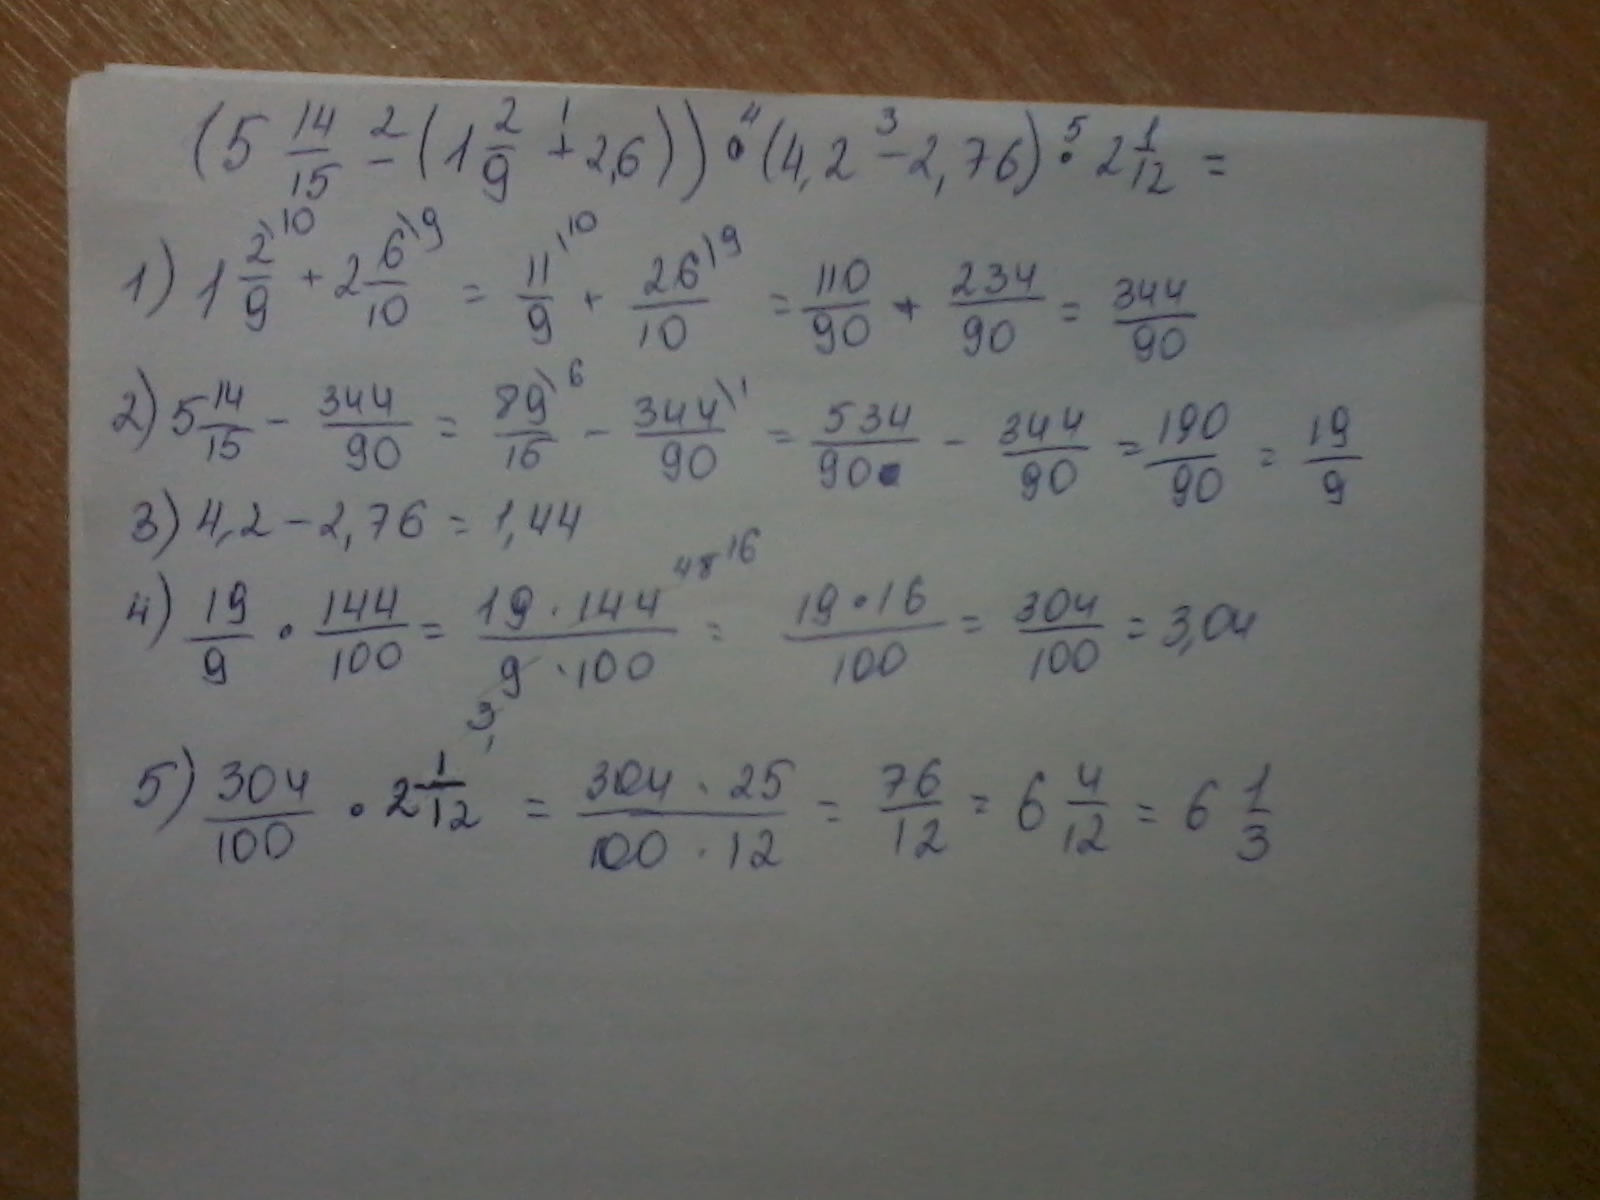 (5 14/15 - (1 2/9 + 2,6)) · (4,2 - 2,76) · 2 1/12 =
1) 1 2/9 + 2 6/10 = 11/9 + 26/10 = 110/90 + 234/90 = 344/90
2) 5 14/15 - 344/90 = 89/15 - 344/90 = 534/90 - 344/90 = 190/90 = 19/9
3) 4,2 - 2,76 = 1,44
4) 19/9 · 144/100 = 19 · 144/9 · 100 = 19 · 16/100 = 304/100 = 3,04
5) 304/100 · 2 1/12 = 304 · 25/100 · 12 = 76/12 = 6 4/12 = 6 1/3